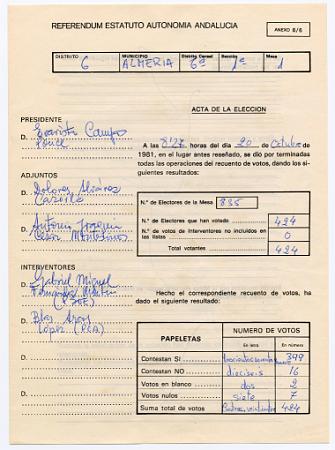 REFERENDUM ESTATUTO AUTONOMIA ANDALUCIA
ANEXO 8/6
DISTRITO 6
MUNICIPIO ALMERIA
Distrito Censal 6ª
Sección 1ª
Mesa 1
ACTA DE LA ELECCION
PRESIDENTE
D. Evaristo Campos
A las 8'27 horas del día 20 de Octubre de
1981, en el lugar antes reseñado, se dió por terminadas
todas las operaciones del recuento de votos, dando los
siguientes resultados:
ADJUNTOS
D. Dolores Alvarez
Cazorla
D. Antonio Joaquin
N.º de Electores de la Mesa 835
N.º de Electores que han votado 424
N.º de votos de Interventores no incluídos en las listas 0
Total votantes 424
INTERVENTORES
D. Gabriel Miguel
Fernández
(PSOE)
D. Blas
López (PCA)
D.
D.
D.
D.
Hecho el correspondiente recuento de votos, ha
dado el siguiente resultado:
PAPELETAS
NUMERO DE VOTOS
En letra
En número
Contestan SI 399
Contestan NO dieciseis 16
Votos en blanco dos 2
Votos nulos siete 7
Suma total de votos 424